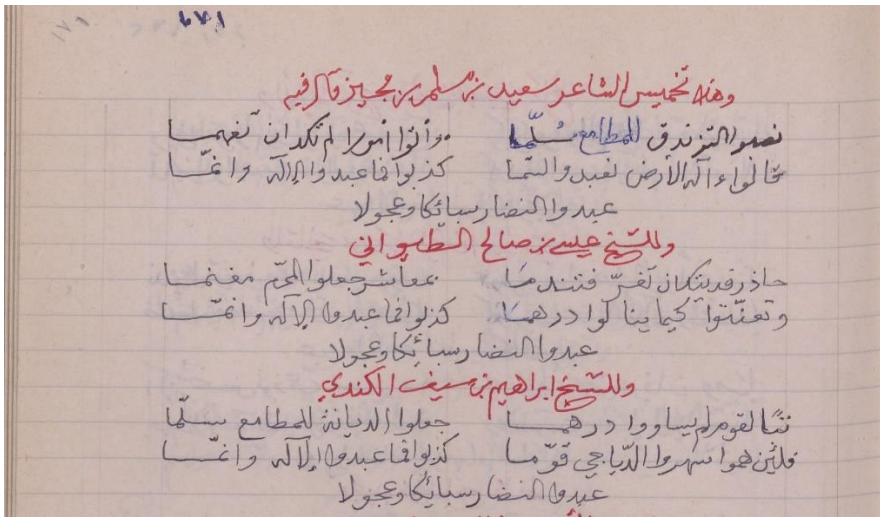 ٦٧١
وهذا تخميس الشاعر سعيد بن مسلم بن مجيز قال فيه
نصبوا التزندق للمطامع سُلّما وأتوا أمورا لم تكد ان تفهما
قالوا ءآله الأرض نعبد والسّما كذبوا فما عبدوا الإاله وانمّا
عبدوا النضار سبائكا وعجولا
وللشيخ عيسى بن صالح الطيواني
حاذر فديتك ان تغرّ فتندمَا بمعاشر جعلوا المحرّم مغنما
وتعنّتوا كيما ينالوا درهمَا كذبوا فما عبدوا الإاله وانمّا
عبدوا النضار سبائكا وعجولا
وللشيخ ابراهيم بن سيف الكندي
تبًّا لقوم لم يساووا درهما جعلوا الديانة للمطامع سلّما
فلئن هموا سهروا الدّياجي قوّما كذبوا فما عبدوا الإاله وانمّا
عبدوا النضار سبائكا وعجولا